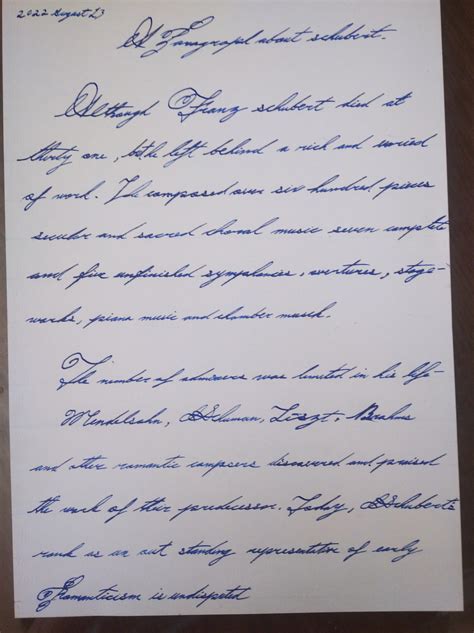 2022 August 23
A Paragraph about schubert.
Although Franz schubert died at
thirty one, he left behind a rich and varied
of work. He composed over six hundred pieces
secular and sacred choral music seven complete
and five unfinished symphonies, overtures, stage-
works, piano music and chamber musik.
The number of admirers was limited in his life-
Mendelsohn, Schuman, Liszt, Brahms
and other romantic composers discovered and praised
the work of their predecessor. Today, Schubert's
rank as an out standing representative of early
Romanticism is undisputed